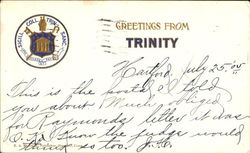 COLL. TRINIT. SANC.
GREETINGS FROM
TRINITY
Hartford, July 25 '05
This is the seal I told
you about Much obliged
for Raymonds letter it was
O.K. I know the judge would
think so too. J.